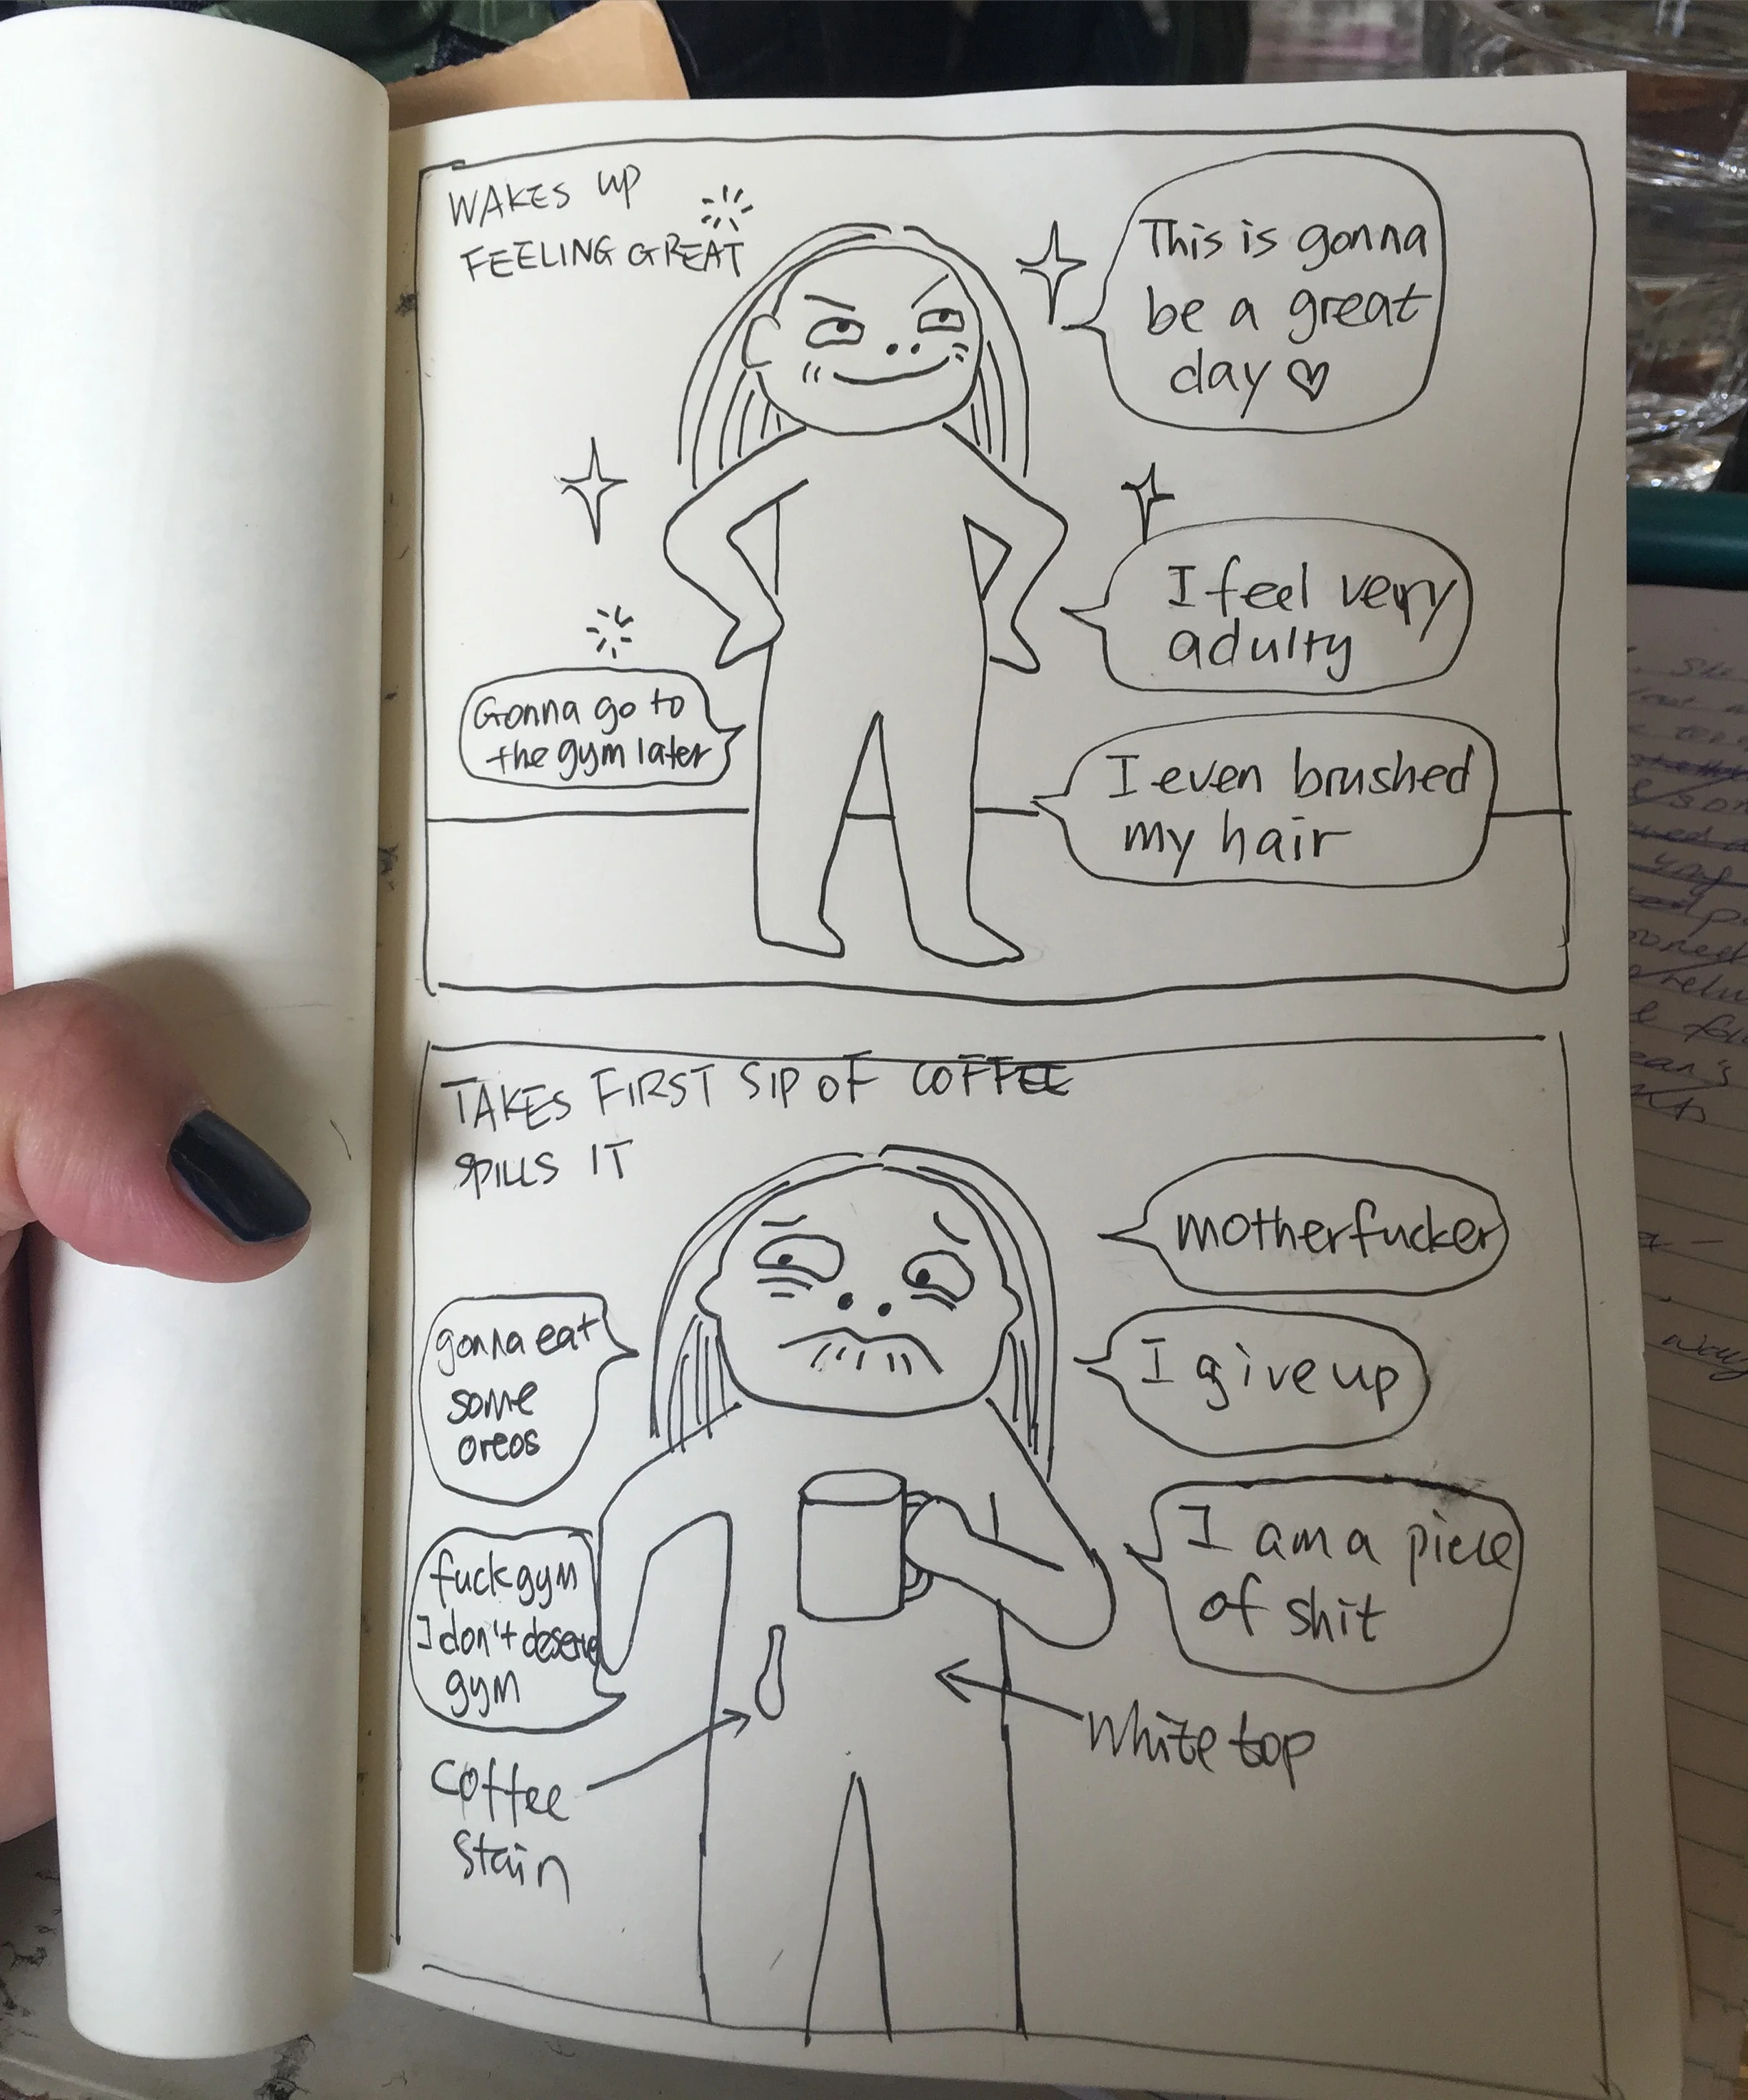 WAKES UP
FEELING GREAT
This is gonna
be a great
day ♡
I feel very
adulty
Gonna go to
the gym later
I even brushed
my hair
TAKES FIRST SIP OF COFFEE
SPILLS IT
motherfucker
gonna eat
some
oreos
I give up
I am a piece
of shit
fuck gym
I don't deserve
gym
White top
Coffee
stain